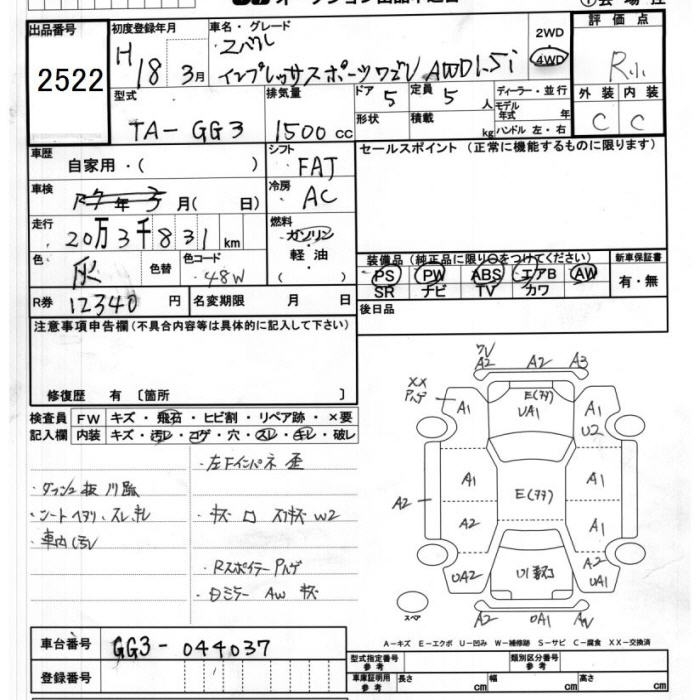 出品番号
2522
初度登録年月
H18 3月
車名・グレード
スバル
インプレッサスポーツワゴン AWD1.5i
2WD
4WD
評価点
R
外装 内装
C C
型式
TA-GG3
排気量
1500cc
ドア
5
定員
5
人
形状
積載
kg
ディーラー・並行
モデル年式
年
ハンドル 左・右
車歴
自家用・( )
シフト
FAT
セールスポイント (正常に機能するものに限ります)
車検
R7年3月( 日)
冷房
AC
走行
20万3千831km
燃料
ガソリン
軽油
( )
色
灰
色替
色コード
48W
装備品 (純正品に限り○をつけてください)
PS PW ABS エアB AW
SR ナビ TV カワ
新車保証書
有・無
R券
12340円
名変期限 月 日
後日品
注意事項申告欄(不具合内容等は具体的に記入して下さい)
修復歴 有 〔箇所 〕
検査員記入欄
FW キズ・飛石・ヒビ割・リペア跡・×要
内装 キズ・汚レ・コゲ・穴・スレ・キレ・破レ
・左Fインパネ 歪
・シートヘタリ、スレ、キレ
・車内汚レ
W2
・Rスポイラー Pハゲ
・ミラー AW キズ
A2 A2 A3
XX
Pハゲ
A1 E(アナ) A1
UA1 U2
A1 A1
A2 E(アナ)
A2 A1
UA2 A2
UA1
スペア
A2 UA1 AW
A-キズ E-エクボ U-凹み W-補修跡 S-サビ C-腐食 XX-交換済
車台番号
GG3-044037
登録番号
型式指定番号
参考
類別区分番号
参考
車庫証明用
参考
長さ cm
幅 cm
高さ cm